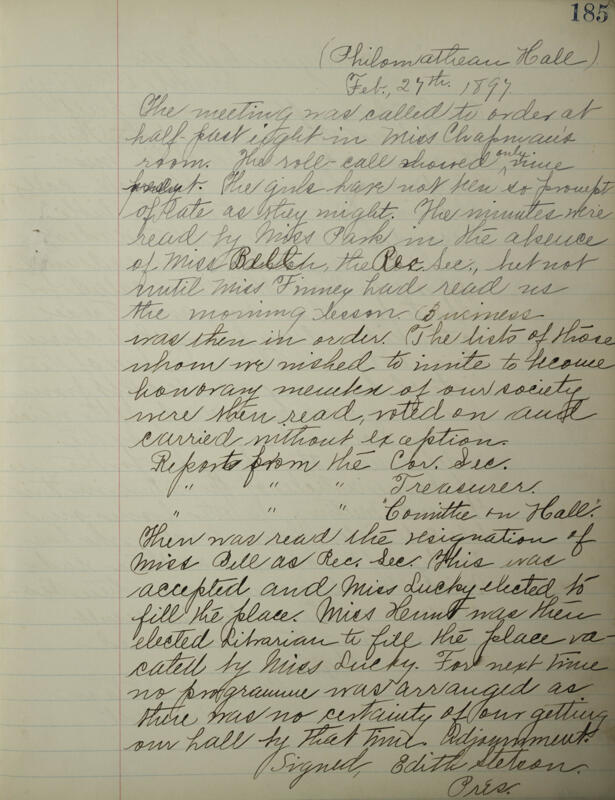 185
(Philomathean Hall)
Feb., 27th. 1897
The meeting was called to order at
half past eight in Miss Chapman's
room. The roll-call showed only nine
present. The girls have not been so prompt
of late as they might. The minutes were
read by Miss Park in the absence
of Miss Bell, the Rec. Sec., but not
until Miss Finney had read us
the morning lesson. Business
was then in order. The lists of those
whom we wished to invite to become
honorary members of our society
were then read, voted on and
carried without exception.
Reports from the Cor. Sec.
" " " Treasurer.
" " " "Comittee on Hall."
Then was read the resignation of
Miss Bell as Rec. Sec. This was
accepted and Miss Lucky elected to
fill the place. Miss was then
elected Librarian to fill the place va-
cated by Miss Lucky. For next time
no programme was arranged as
there was no certainty of our getting
our hall by that time. Adjournment.
Signed, Edith Stetson.
Pres.